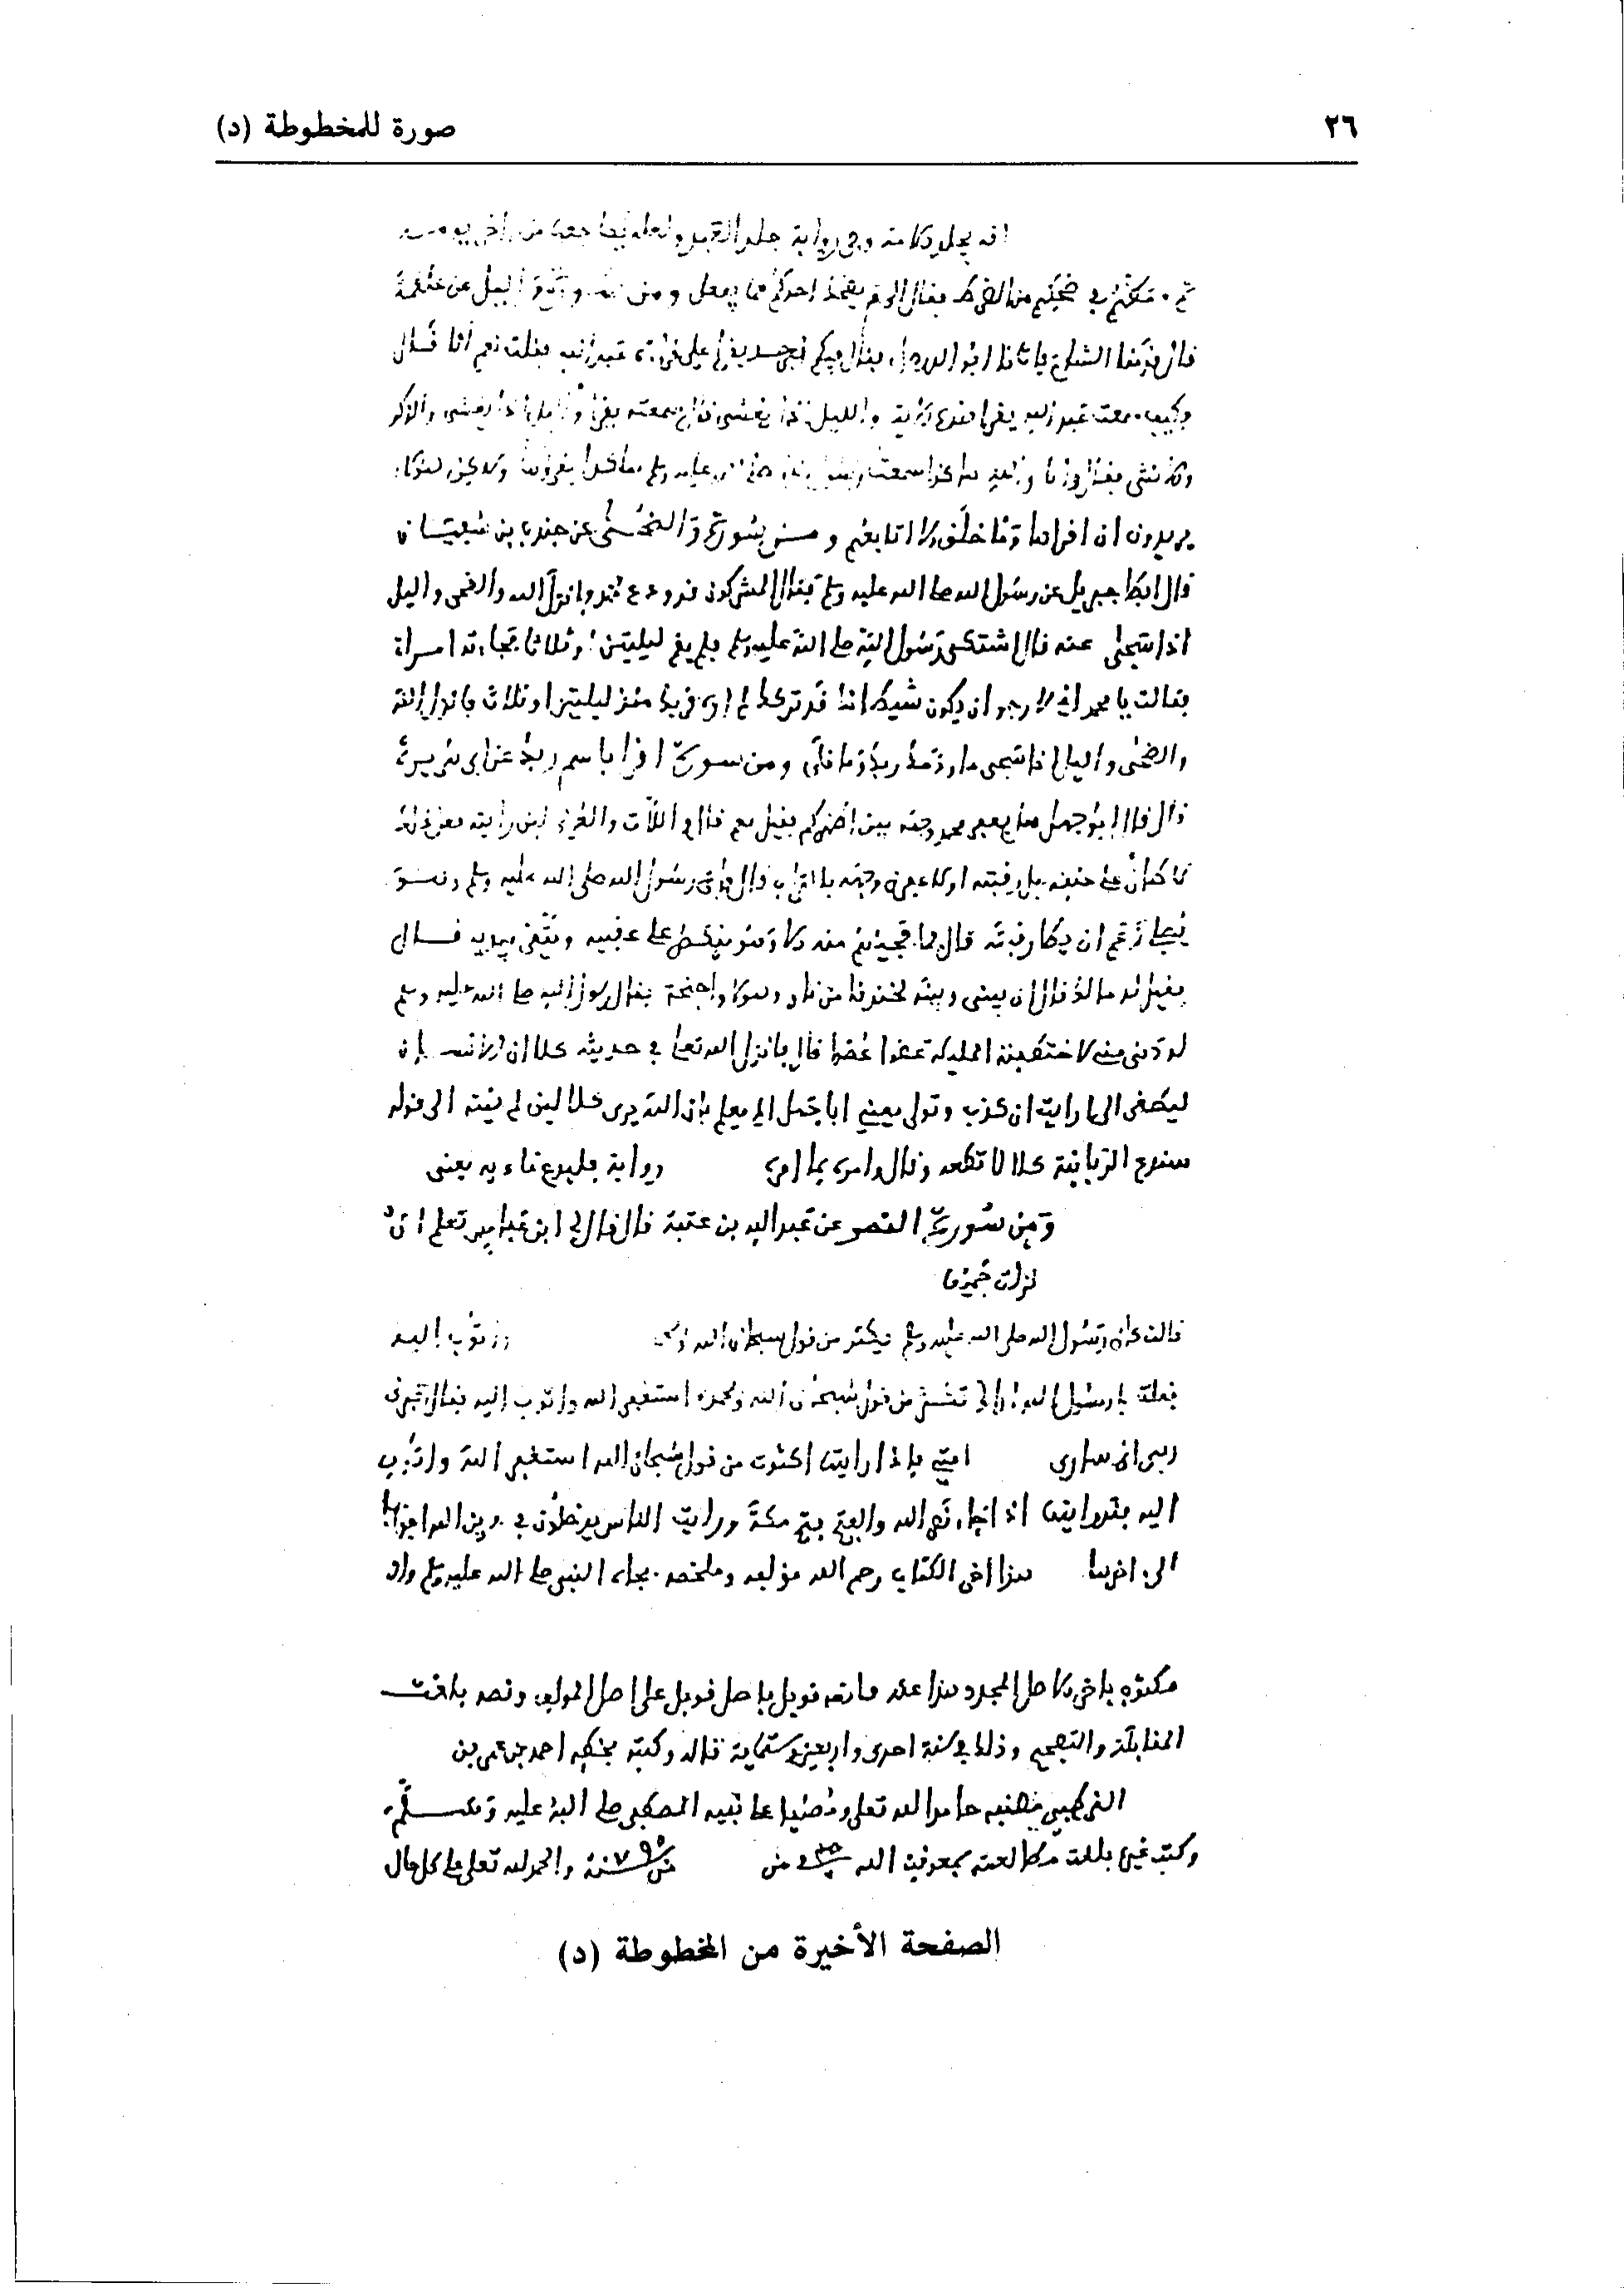 ٢٦
صورة للمخطوطة (د)
وفي رواية جلد العبد ولعله يضاجعها من آخر يومه
ضحكهم من الضرطة فقال الى م يضحك احدكم مما يفعل ومن عن علقمة
قال قدمنا الشام فاتانا ابو الدرداء فقال فيكم احد يقرا على قراءة عبد الله فقلت نعم أنا قال
وكيف سمعت عبد الله يقرا هذه الاية والليل اذا يغشى قال سمعته يقرأ والليل اذا يغشى والذكر
والانثى فقال وانا والله هاكذا سمعت رسول الله صلى الله عليه وسلم يقرؤها ولاكن هؤلاء
يريدون ان اقراها وما خلق ولا اتابعهم ومن سورة والضحى عن جندب بن سفيان
قال ابطا جبريل عن رسول الله صلى الله عليه وسلم فقال المشركون قد ودع محمد فانزل الله والضحى واليل
اذا سجى عنه قال اشتكى رسول الله صلى الله عليه وسلم فلم يقم ليلتين او ثلاثا فجاءته امراة
فقالت يا محمد اني لارجو ان يكون شيطانك قد تركك لم اره قربك منذ ليلتين او ثلاث فانزل الله
والضحى واليل اذا سجى ما ودعك ربك وما قلى ومن سورة اقرا باسم ربك عن ابي هريرة
قال قال ابو جهل هل يعفر محمد وجهه بين اظهركم فقيل نعم فقال واللات والعزى لئن رايته يفعل ذلك
لاطأن على رقبته او لاعفرن وجهه بالتراب قال فاتى رسول الله صلى الله عليه وسلم وهو
يصلي زعم ان يطا رقبته قال فما فجئهم منه الا وهو ينكص على عقبيه ويتقي بيديه قال
فقيل له مالك قال ان بيني وبينه لخندقا من نار وهولا واجنحة فقال رسول الله صلى الله عليه وسلم
لو دنى مني لاختطفته المليكة عضوا عضوا قال فانزل الله تعلى في حديثه كلا ان الانسـن
ليطغى الى ارايت ان كذب وتولى يعني ابا جهل الم يعلم بان الله يرى كلا لين لم ينته الى قوله
سندع الزبانية كلا لا تطعه وقال وامره بما امره رواية فليدع ناديه يعنى
ومن سورة النصر عن عبد الله بن عتبة قال قال لي ابن عباس تعلم اي
نزلت جميعا
قالت كان رسول الله صلى الله عليه وسلم يكثر من قول سبحان الله واتوب اليه
فقلت يا رسول الله اراك تكثر من قول سبحان الله وبحمده استغفر الله واتوب اليه فقال اخبرني
ربى انى سارى امتي فاذا رايتها اكثرت من قول سبحان الله استغفر الله واتوب
اليه فقد رايتها اذا جاء نصر الله والفتح فتح مكة ورايت الناس يدخلون في دين الله افواجا
الى اخرها هذا اخر الكتاب رحم الله مؤلفه وملخصه بجاه النبي صلى الله عليه وسلم واله
مكتوب باخر الاصل المجرد هذا عنه ما نصه قوبل باصل قوبل على اصل المولف ونصه بلغت
المقابلة والتصحيح وذلك في سنة احدى واربعين وستماية قاله وكتبه بخطه احمد بن عمر بن
القرطبي حامدا لله تعلى ومصليا على نبيه المصطفى صلى الله عليه وسلم
وكتب غيره بلغت مطالعته بمعونة الله سنة والحمد لله تعلى على كل حال
الصفحة الأخيرة من المخطوطة (د)